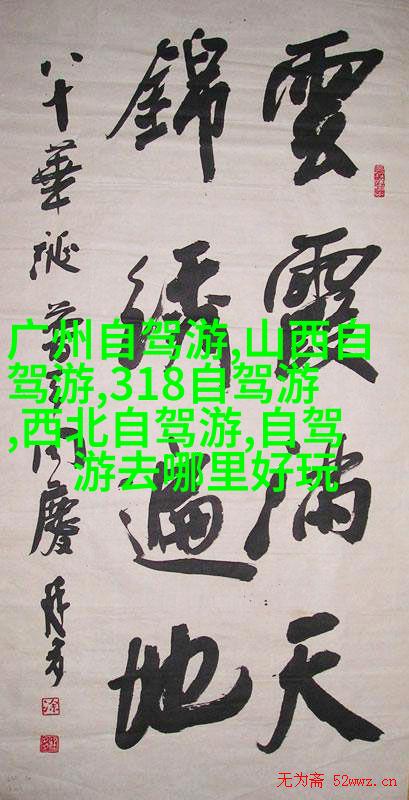 雲霞滿天
錦綉遍地
八十華誕 同慶
广州自驾游,山西自
驾游,318自驾游
,西北自驾游,自驾
游去哪里好玩
无为斋 52wwz.cn